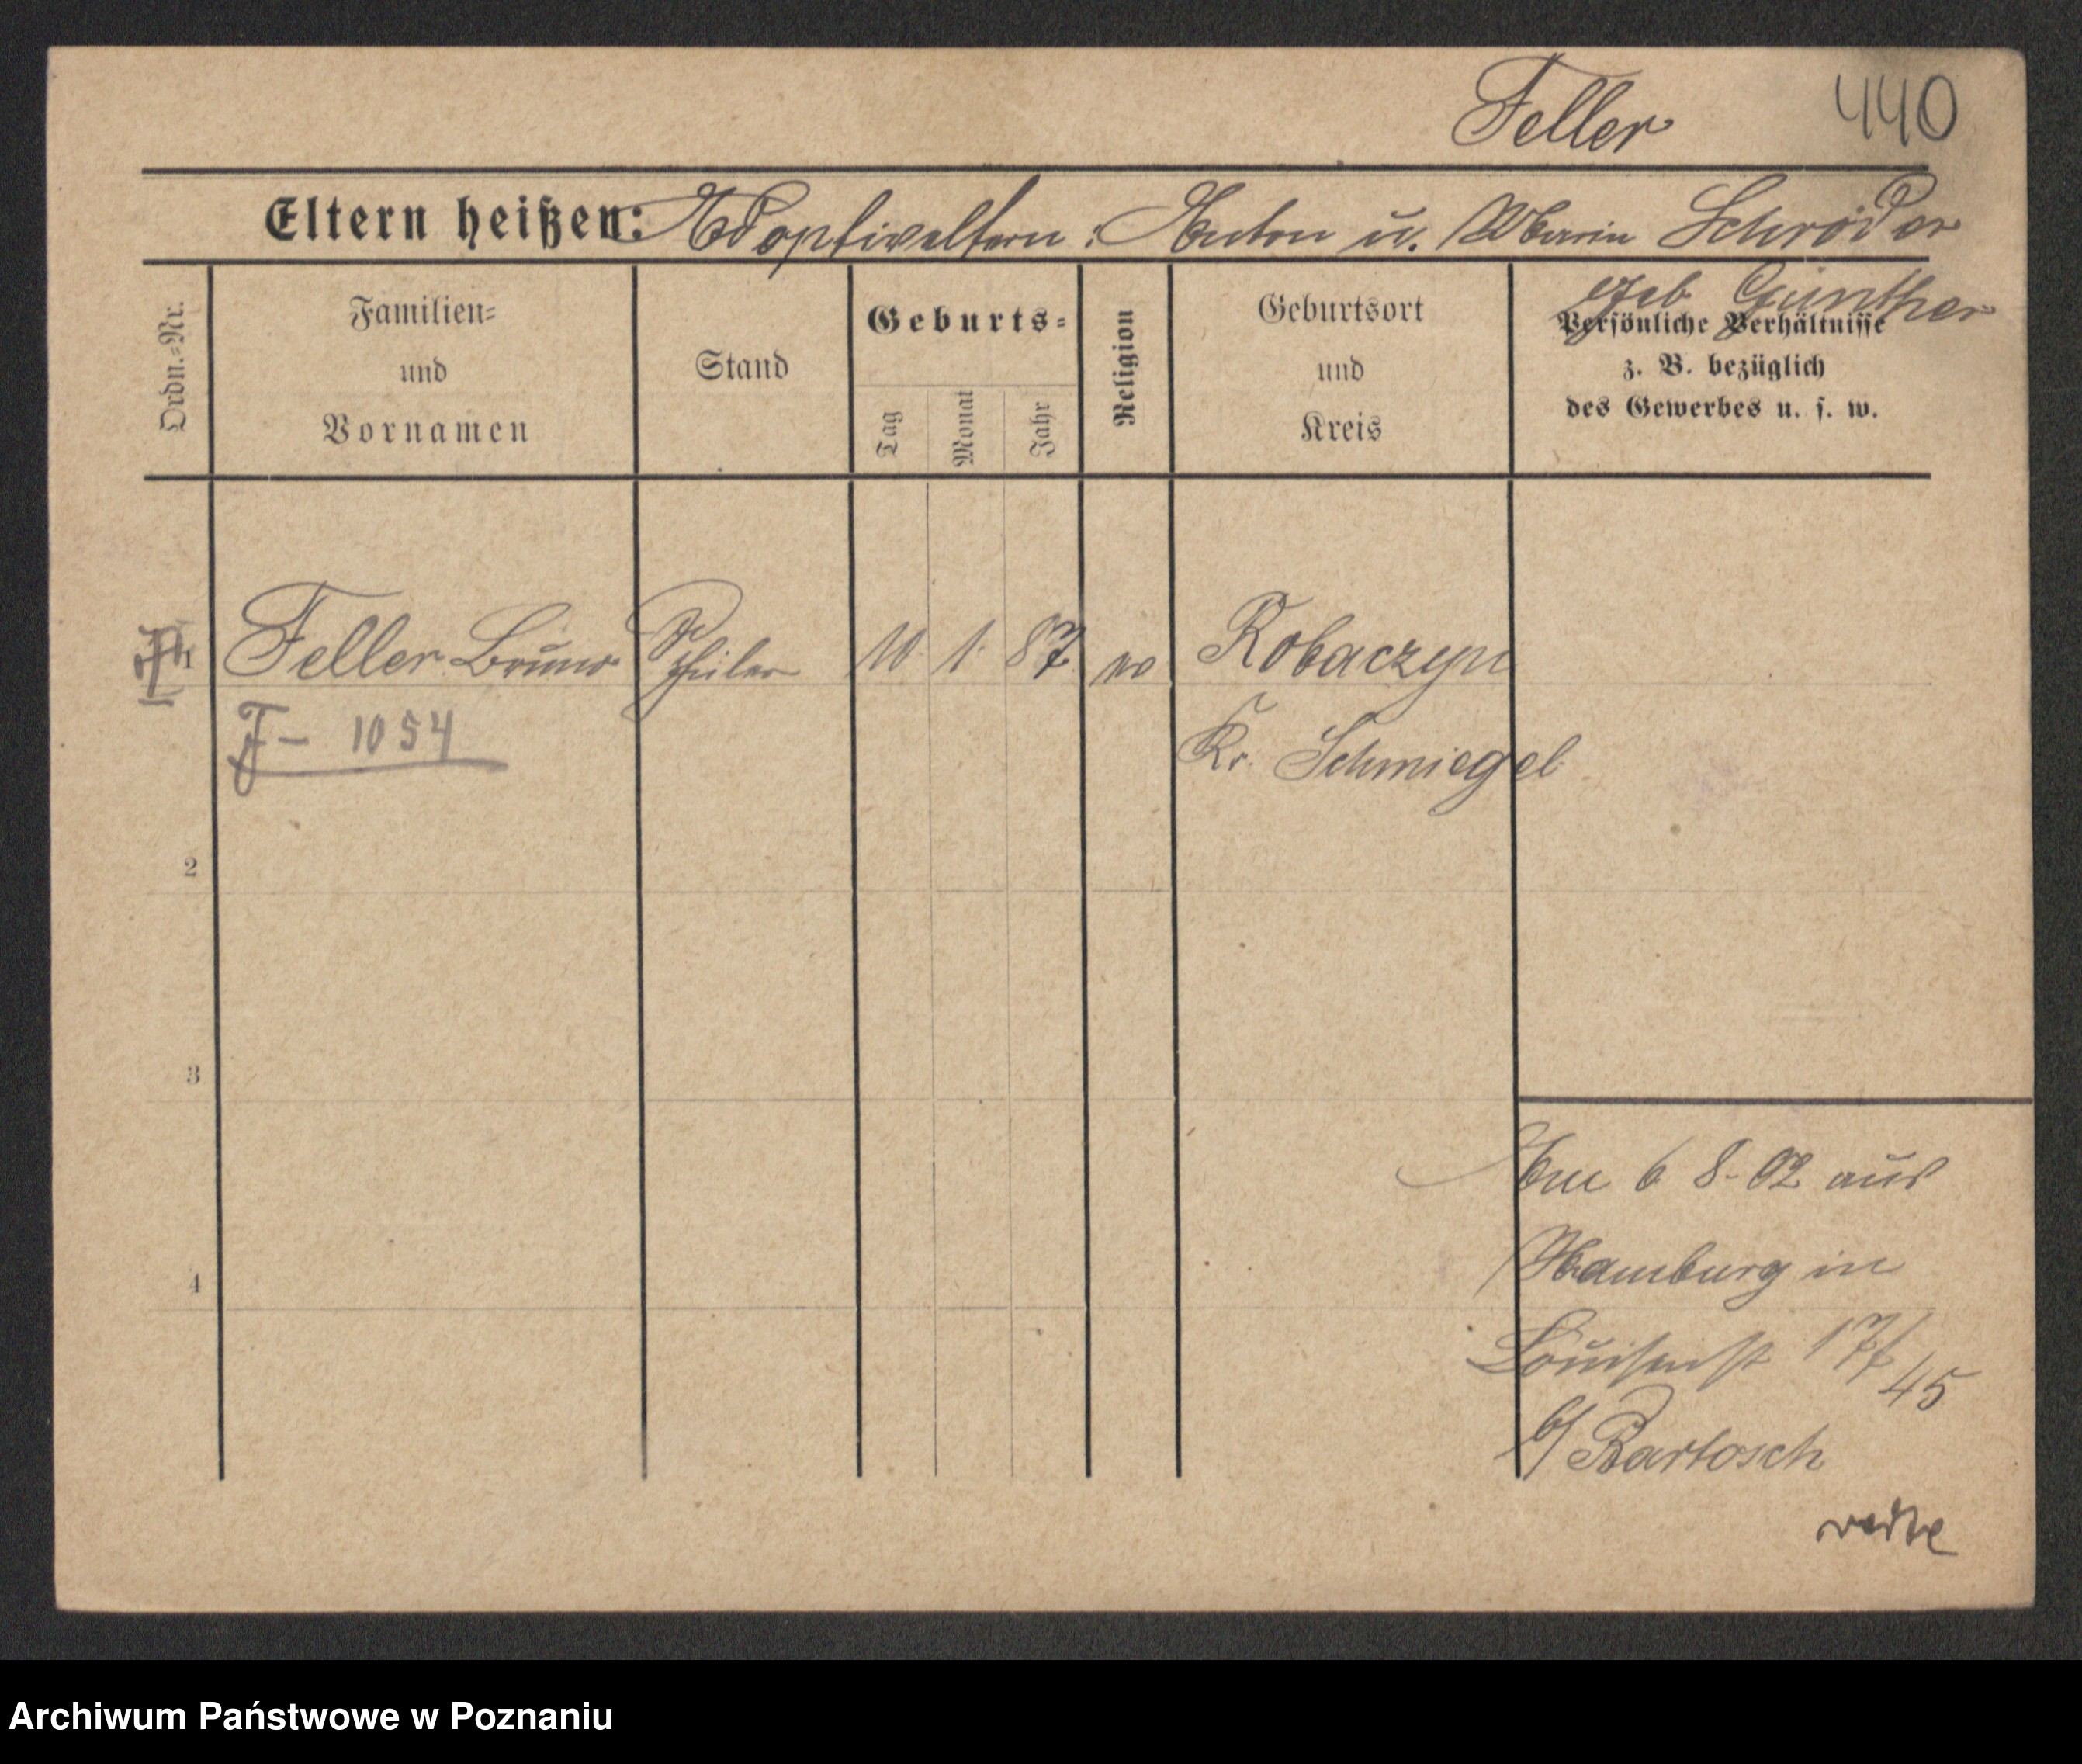 Feller 440
Eltern heißen: Adoptiveltern: Anton u. Marie Schröder
geb Günther
Ordn.-Nr.
Familien-
und
Vornamen
Stand
Geburts-
Tag
Monat
Jahr
Religion
Geburtsort
und
Kreis
Persönliche Verhältnisse
z. B. bezüglich
des Gewerbes u. s. w.
1 Feller Bruno 10. 1. 87 Robaczyn
F- 1054
Kr. Schmiegel
2
3
4
Am 6 8-02 aus
Hamburg in
Louisenst 17/45
b/ Bartosch
Archiwum Państwowe w Poznaniu